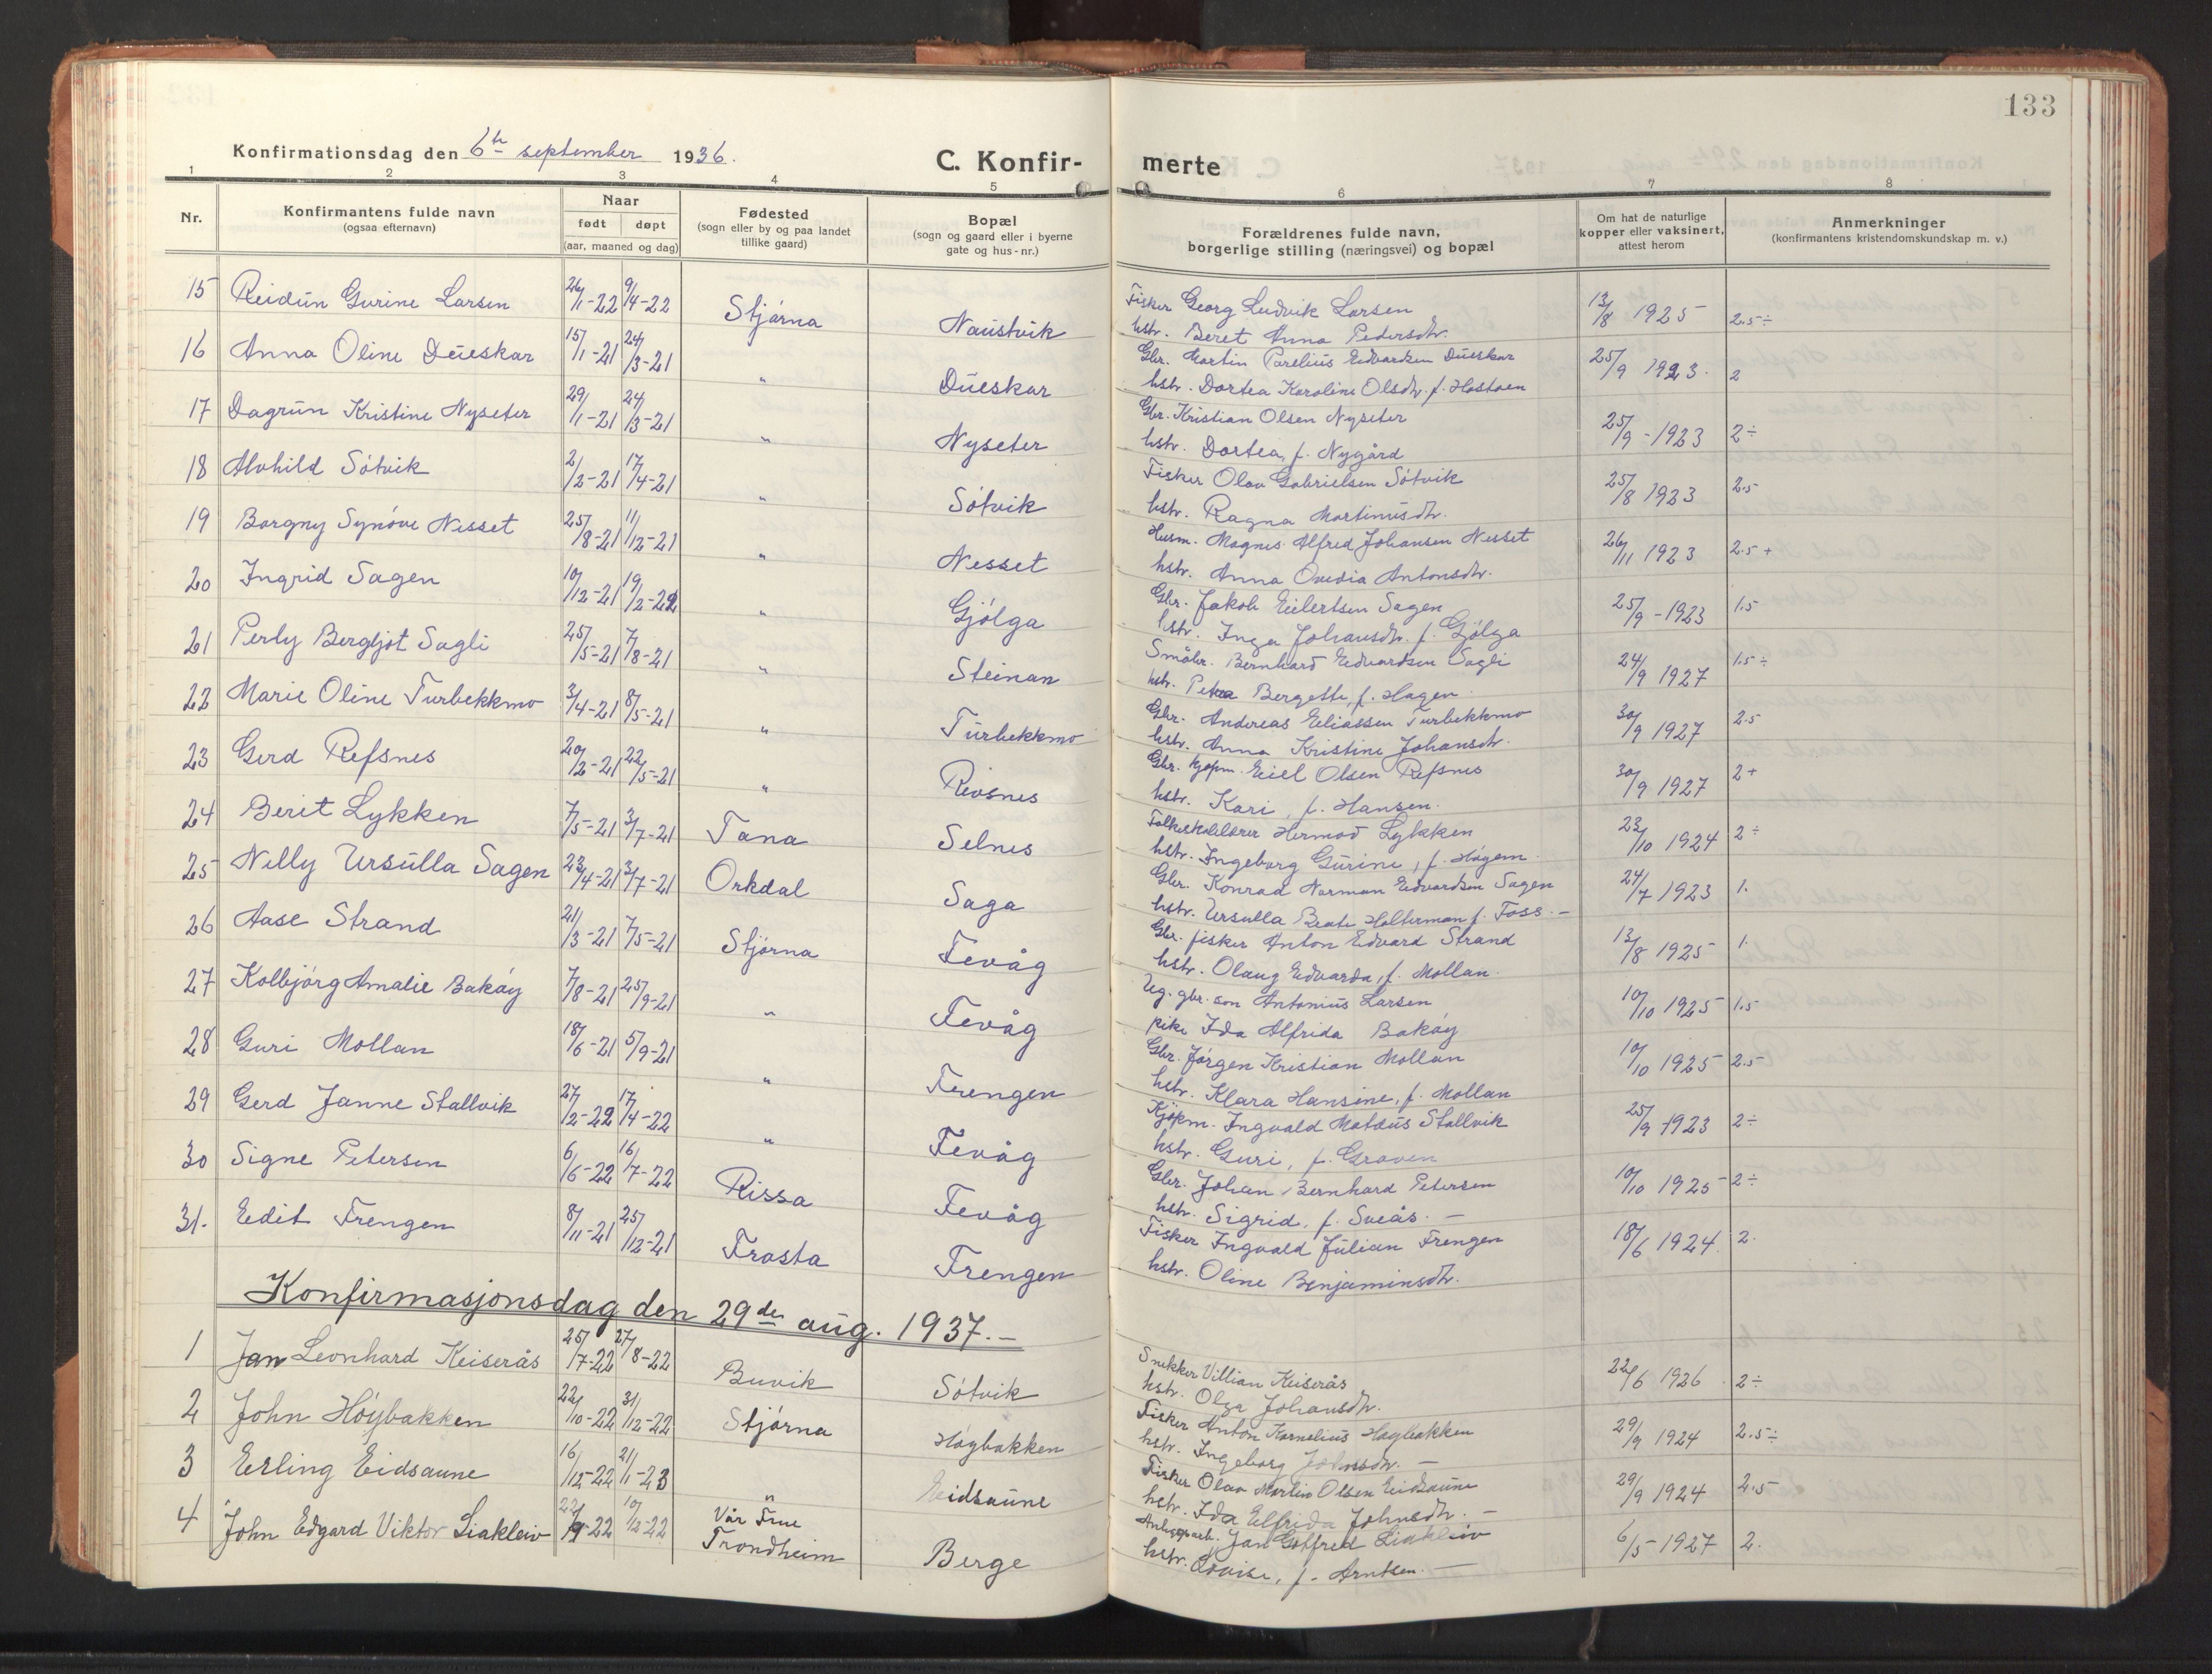 133
Konfirmationsdag den 6te september 1936.
C. Konfir-
merte
1 2 3 4 5 6 7 8
Nr.
Konfirmantens fulde navn
(ogsaa efternavn)
Naar
født døpt
(aar, maaned og dag)
Fødested
(sogn eller by og paa landet
tillike gaard)
Bopæl
(sogn og gaard eller i byerne
gate og hus-nr.)
Forældrenes fulde navn,
borgerlige stilling (næringsvei) og bopæl
Om hat de naturlige
kopper eller vaksinert,
attest herom
Anmerkninger
(konfirmantens kristendomskundskap m. v.)
15 Reidun Gurine Larsen 26/1-22 9/4-22 Stjórna Naustvik Fisker Georg Ludvik Larsen 13/8 1925 2.5÷
hstr. Beret Anna Pedersdtr.
16 Anna Oline Dueskar 15/1-21 24/3-21 " Dueskar Gbr. Martin Parelius Edvardsen Dueskar 25/9 1923. 2
hstr. Dortea Karoline Olsdtr. f. Hastoen
17 Dagrun Kristine Nyseter 29/1-21 24/3-21 " Nyseter Gbr. Kristian Olsen Nyseter 25/9-1923 2÷
hstr. Dortea, f. Nygård
18 Alvhild Sótvik 2/2-21 17/4-21 " Sótvik Fisker Olav Gabrielsen Sótvik 25/8 1923 2.5
hstr. Ragna Martinusdtr.
19 Borgny Synóve Nesset 25/8-21 11/12-21 " Nesset Husm. Magnus Alfred Johansen Nesset 26/11 1923 2.5+
hstr. Anna Ovedia Antonsdtr.
20 Ingrid Sagen 10/12-21 19/2-22 " Gjólga Gbr. Jakob Eilertsen Sagen 25/9-1923 1.5
hstr. Inga Johansdtr. f. Gjólga
21 Perly Bergljot Sagli 25/5-21 7/8-21 " Steinan Småbr. Bernhard Edvardsen Sagli 24/9 1927 1.5÷
hstr. Petra Bergette, f. Hagen
22 Marie Oline Turbekkmo 3/4-21 8/5-21 " Turbekkmo Gbr. Andreas Eliassen Turbekkmo 30/9 1927 2.5
hstr. Anna Kristine Johansdtr.
23 Gerd Refsnes 20/2-21 22/5-21 " Revsnes Gbr. kjøpm. Eiel Olsen Refsnes 30/9 1927 2+
hstr. Kari, f. Hansen.
24 Berit Lykken 7/5-21 3/7-21 Tana Selnes Folkeskolelærer Hermod Lykken 23/10 1924 2÷
hstr. Ingeborg Gurine, f. Hógem
25 Nelly Ursulla Sagen 23/4-21 3/7-21 Orkdal Saga Gbr. Konrad Norman Edvardsen Sagen 24/7 1923 1.
hstr. Ursulla Beate Holterman f. Foss.-
26 Aase Strand 21/3-21 7/5-21 Stjórna Fevåg Gbr. fisker Anton Edvard Strand 13/8 1925 1.
hstr. Olaug Edvarda, f. Mollan.
27 Kolbjórg Amalie Bakóy 7/8-21 25/9-21 " Fevåg Ug. gbr. son Antonius Larsen 10/10 1925 1.5
pike Ida Alfrida Bakóy
28 Guri Mollan 18/6-21 5/9-21 " Frengen Gbr. Jórgen Kristian Mollan 10/10 1925 2.5
hstr. Klara Hansine, f. Mollan
29 Gerd Janne Stallvik 27/2-22 17/4-22 " Fevåg Kjópm. Ingvald Mateus Stallvik 25/9 1923 2÷
hstr. Guri, f. Graven
30 Signe Petersen 6/6-22 16/7-22 Rissa Fevåg Gbr. Johan Bernhard Petersen 10/10 1925 2÷
hstr. Sigrid, f. Sveås.-
31. Edit Frengen 8/11-21 25/12-21 Frosta Frengen Fisker Ingvald Julian Frengen 18/6 1924. 2.
hstr. Oline Benjaminsdtr.
Konfirmasjonsdag den 29de aug. 1937.-
1 Jan Leonhard Keiserås 25/7-22 27/8-22 Buvik Sótvik Snekker Villian Keiserås 22/6 1926 2÷
hstr. Olga Johansdtr.
2 John Hóybakken 22/10-22 31/12-22 Stjórna Hóybakken Fisker Anton Kornelius Hóybakken 29/9 1924 2.5÷
hstr. Ingeborg Johnsdtr.-
3 Erling Eidsaune 16/12-22 21/1-23 " Eidsaune Fisker Olav Martin Olsen Eidsaune 29/9 1924 2.5
hstr. Ida Elfrida Johnsdtr.-
4 John Edgard Viktor Liakleiv 22/9-22 10/12-22 Vår Frue Trondheim Berge Anleggsarb. Jan Gotfred Liakleiv 6/5-1927 2.
hstr. Lovise, f. Arntsen.-